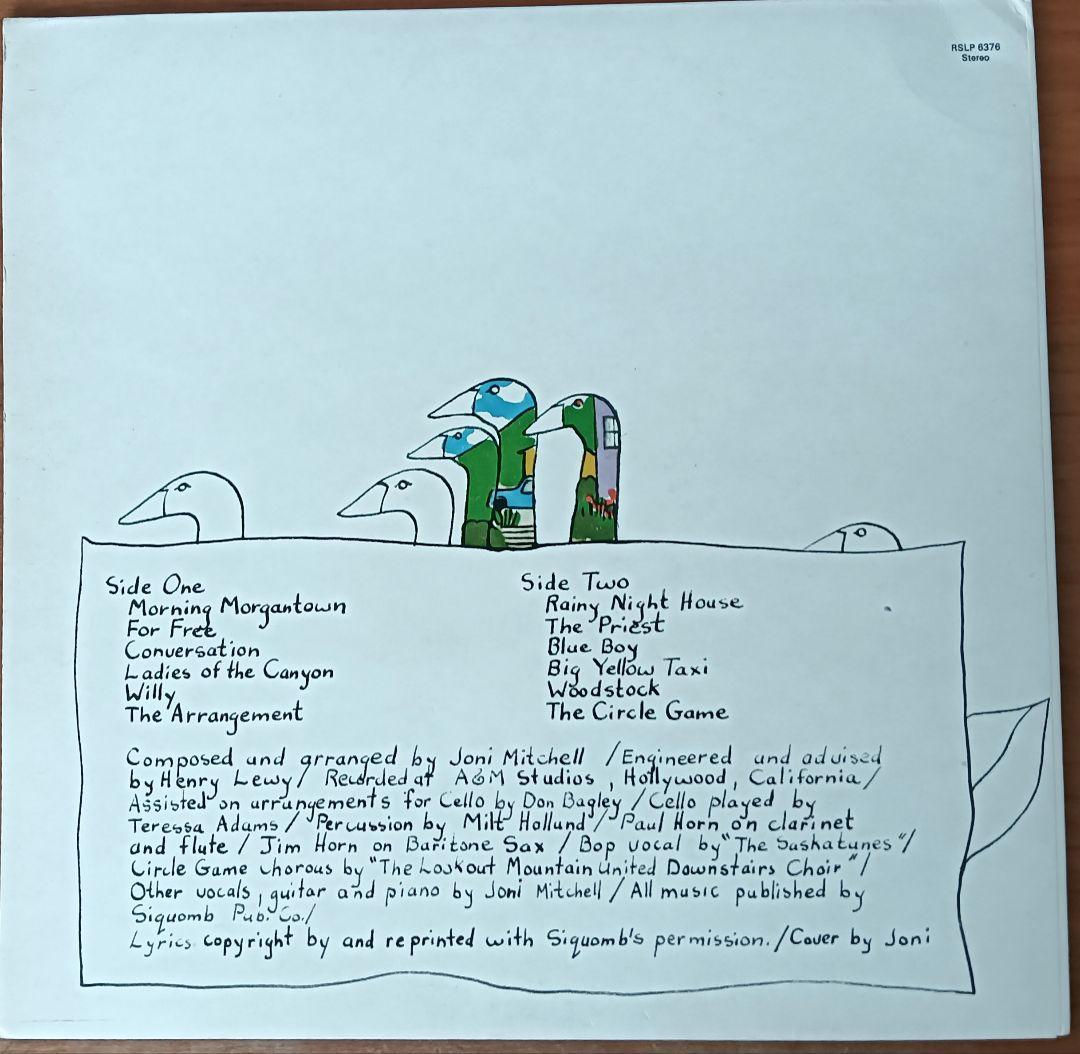 RSLP 6376
Stereo
Side One
Morning Morgantown
For Free
Conversation
Ladies of the Canyon
Willy
The Arrangement
Side Two
Rainy Night House
The Priest
Blue Boy
Big Yellow Taxi
Woodstock
The Circle Game
Composed and arranged by Joni Mitchell / Engineered and advised
by Henry Lewy / Recorded at A&M Studios, Hollywood, California /
Assisted on arrangements for Cello by Don Bagley / Cello played by
Teressa Adams / Percussion by Milt Holland / Paul Horn on clarinet
and flute / Jim Horn on Baritone Sax / Bop vocal by "The Saskatunes" /
Circle Game chorous by "The Lookout Mountain United Downstairs Choir" /
Other vocals, guitar and piano by Joni Mitchell / All music published by
Siquomb Pub. Co. /
Lyrics copyright by and reprinted with Siquomb's permission. / Cover by Joni